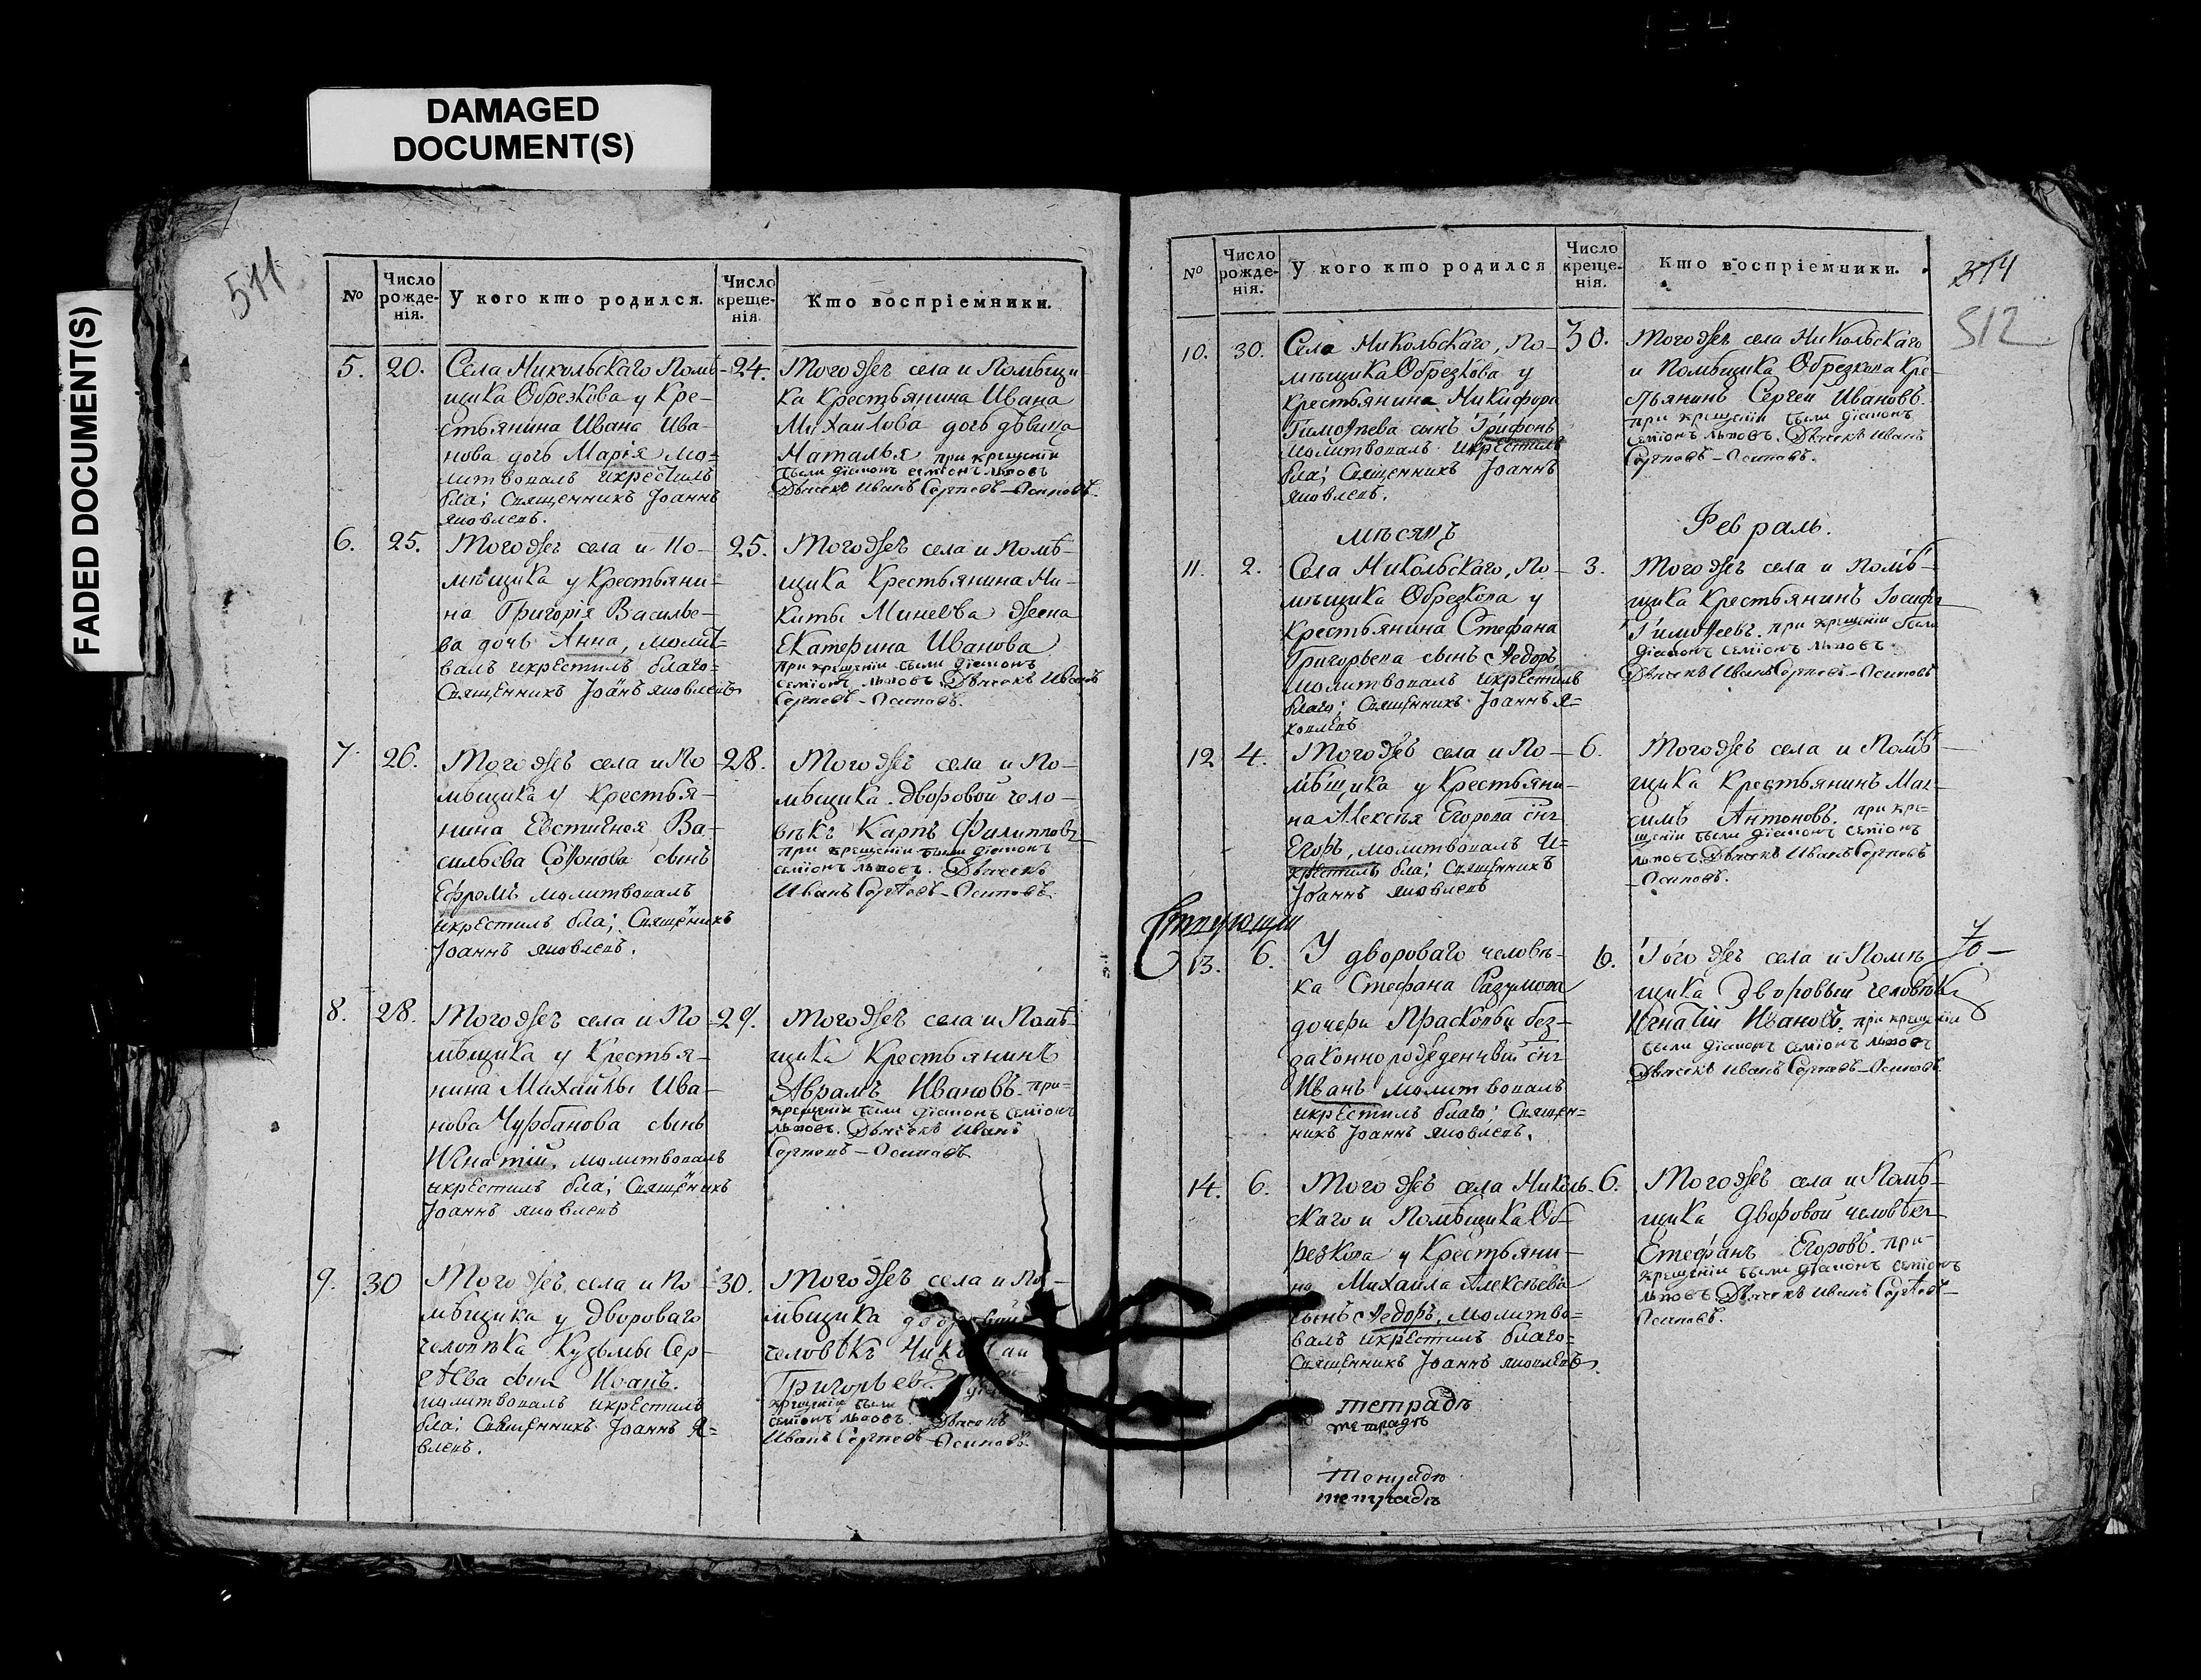 DAMAGED
DOCUMENT(S)
FADED DOCUMENT(S)
511
№
Число рожденія.
У кого кто родился.
Число крещенія
Кто воспріемники.
5.
20.
Села Никольскаго Помѣ-
щика Обрезкова у Кре-
стьянина Ивана Ива-
нова дочь Марія мо-
литвовалъ икрестилъ
бла; Священникъ Іоаннъ
Яковлевъ.
24.
Тогожъ села и Помѣщи
ка Крестьянина Ивана
Михаилова дочь дѣвица
Наталья при крещеніи
были діаконъ семіонъ львовъ
Дьячекъ Иванъ Сергѣевъ-Осиповъ.
6.
25.
Тогожъ села и По-
мѣщика у Крестьяни-
на Григорія Василье-
ва дочь Анна, молит-
валъ икрестилъ благо-
Священникъ Іоаннъ Яковлевъ
25.
Тогожъ села и Помѣ-
щика Крестьянина Ни-
киты Минеева жена
Екатерина Иванова
при крещеніи были діаконъ
семіонъ львовъ. Дьячекъ Иванъ
Сергѣевъ-Осиповъ.
7.
26.
Тогожъ села и По-
мѣщика у Крестья-
нина Евстигнея Ва-
сильева Софонова сынъ
Ефремъ молитвовалъ
икрестилъ бла; Священникъ
Іоаннъ Яковлевъ.
28.
Тогожъ села и По-
мѣщика дворовой чело-
вѣкъ Карпъ Филипповъ
при крещеніи были діаконъ
семіонъ львовъ. Дьячекъ
Иванъ Сергѣевъ-Осиповъ.
8.
28.
Тогожъ села и По-
мѣщика у Крестья-
нина Михайлы Ива-
нова Чурбанова сынъ
Игнатій, молитвовалъ
икрестилъ бла; Священникъ
Іоаннъ Яковлевъ
29.
Тогожъ села и Помѣ-
щика Крестьянинъ
Аврамъ Ивановъ. при-
крещеніи были діаконъ семіонъ
львовъ. Дьячекъ Иванъ
Сергѣевъ-Осиповъ
9.
30
Тогожъ села и По-
мѣщика у дворoваго
человѣка Кузьмы Сер-
гѣева сынъ Иванъ.
молитвовалъ икрестилъ
бла; Священникъ Іоаннъ Я-
влевъ.
30.
Тогожъ села и По-
мѣщика дворовый
человѣкъ
Григорьевъ
крещеніи были
семіонъ львовъ. Дьячекъ
Иванъ Сергѣевъ-Осиповъ.
№
Число рожденія.
У кого кто родился
Число крещенія.
Кто воспріемники.
374
512
10.
30.
Села Никольскаго, По-
мѣщика Обрезкова у
крестьянина Никифора
Тимоѳеева сынъ Трифонъ
молитвовалъ икрестилъ
бла; Священникъ Іоаннъ
Яковлевъ.
30.
Тогожъ села Никольскаго
и Помѣщика Обрезкова Кре-
стьянинъ Сергей Ивановъ.
при крещеніи были діаконъ
семіонъ львовъ. Дьячекъ Иванъ
Сергѣевъ-Осиповъ.
мѣсяцъ
Февраль.
11.
2.
Села Никольскаго, По-
мѣщика Обрезкова у
Крестьянина Стефана
Григорьева сынъ Ѳедоръ,
молитвовалъ икрестилъ
благо; Священникъ Іоаннъ Я-
ковлевъ
3.
Тогожъ села и Помѣ-
щика Крестьянинъ Іосифъ
Тимоѳеевъ. при крещеніи были
діаконъ семіонъ львовъ.
Дьячекъ Иванъ Сергѣевъ-Осиповъ
12
4.
Тогожъ села и По-
мѣщика у Крестьяни-
на Алексѣя Егорова снъ
Егоръ, молитвовалъ и-
крестилъ бла; Священникъ
Іоаннъ Яковлевъ
6.
Тогожъ села и Помѣ-
щика Крестьянинъ Мак-
симъ Антоновъ. при кре-
щеніи были діаконъ семіонъ
львовъ. Дьячекъ Иванъ Сергѣевъ
-Осиповъ.
13.
6.
У двороваго человѣ-
ка Стефана Разумова
дочери Прасковьи без-
законнорожденный снъ
Иванъ молитвовалъ
икрестилъ благо; Священ-
никъ Іоаннъ Яковлевъ.
6.
Тогожъ села и Помѣ
щика Дворовый человѣкъ
Игнатій Ивановъ. при крещеніи
были діаконъ семіонъ львовъ
Дьячекъ Иванъ Сергѣевъ-Осиповъ.
14.
6.
Тогожъ села Николь-
скаго и Помѣщика Об-
резкова у Крестьяни-
на Михаила Алексѣева
сынъ Ѳедоръ, молитво-
валъ икрестилъ благо-
Священникъ Іоаннъ Яковлевъ.
6.
Тогожъ села и Помѣ-
щика дворовой человѣкъ
Стефанъ Егоровъ. при-
крещеніи были діаконъ семіонъ
львовъ. Дьячекъ Иванъ Сергѣевъ-
Осиповъ.
тетрадь
тетрадь
тетрадь